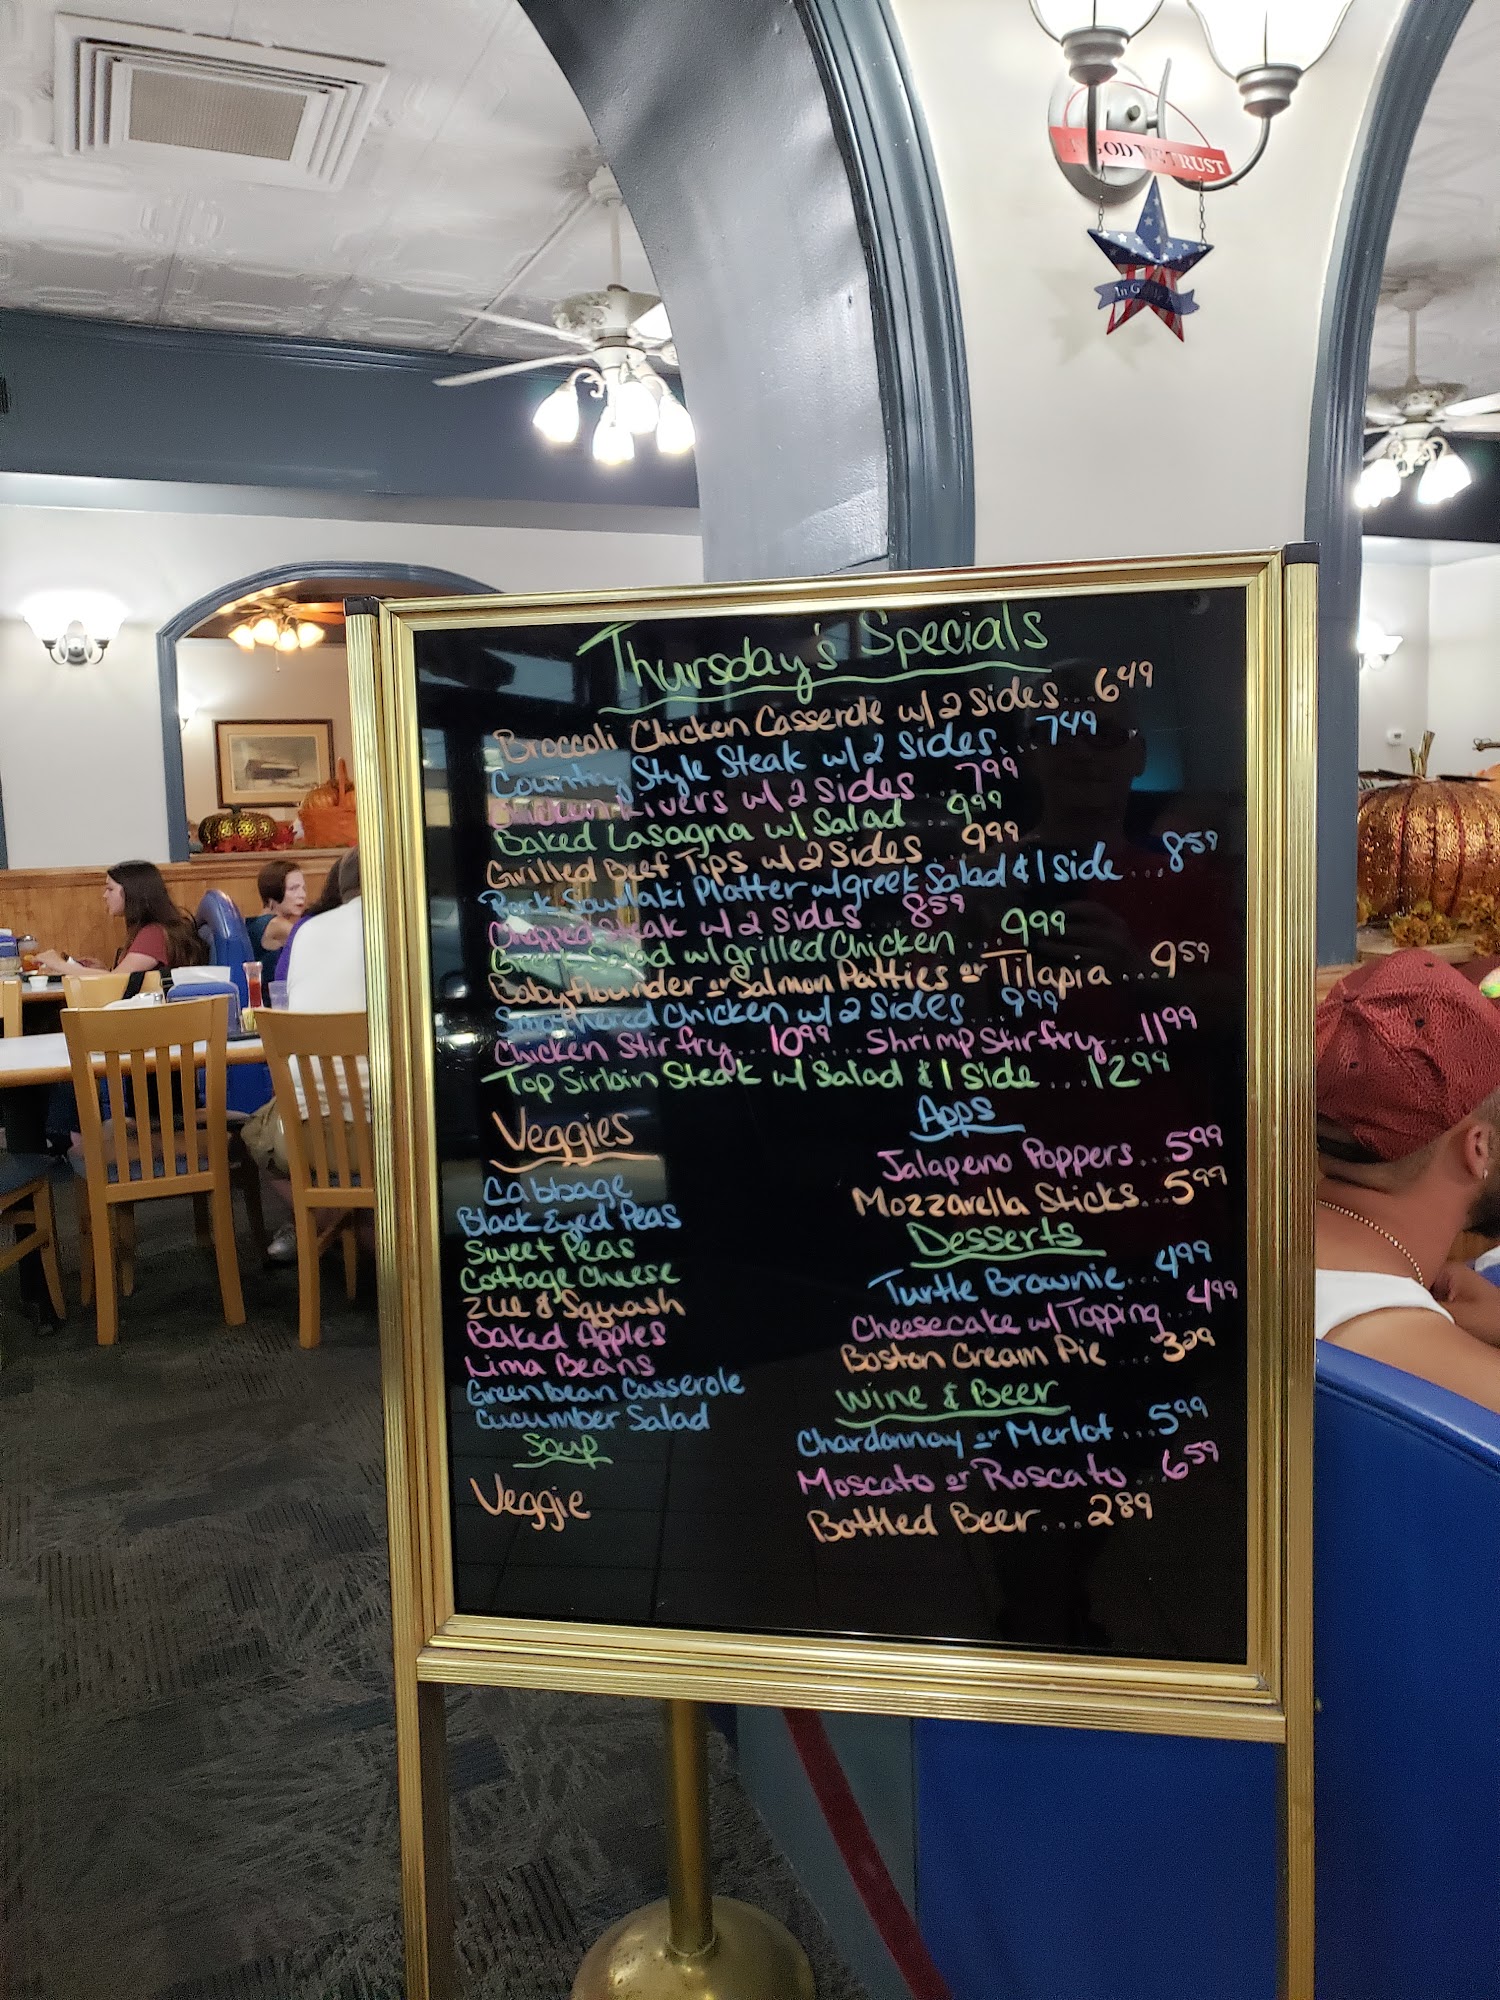 GOD WE TRUST
In G
Thursday's Specials
Broccoli Chicken Casserole w/ 2 Sides...6⁴⁹
Country Style Steak w/ 2 Sides...7⁴⁹
Chicken Livers w/ 2 Sides...7⁹⁹
Baked Lasagna w/ Salad...9⁹⁹
Grilled Beef Tips w/ 2 Sides...9⁹⁹
Pork Souvlaki Platter w/ greek Salad & 1 Side...8⁵⁹
Chopped Steak w/ 2 Sides...8⁵⁹
Greek Salad w/ grilled Chicken...9⁹⁹
Baby Flounder or Salmon Patties or Tilapia...9⁵⁹
Smothered Chicken w/ 2 Sides...9⁹⁹
Chicken Stir fry...10⁹⁹.....Shrimp Stir fry...11⁹⁹
Top Sirloin Steak w/ Salad & 1 Side...12⁹⁹
Veggies
Cabbage
Black Eyed Peas
Sweet Peas
Cottage Cheese
Zue & Squash
Baked Apples
Lima Beans
Green Bean Casserole
Cucumber Salad
Soup
Veggie
Apps
Jalapeno Poppers...5⁹⁹
Mozzarella Sticks...5⁹⁹
Desserts
Turtle Brownie...4⁹⁹
Cheesecake w/ Topping...4⁹⁹
Boston Cream Pie...3²⁹
Wine & Beer
Chardonnay or Merlot...5⁹⁹
Moscato or Roscato...6⁵⁹
Bottled Beer...2⁸⁹